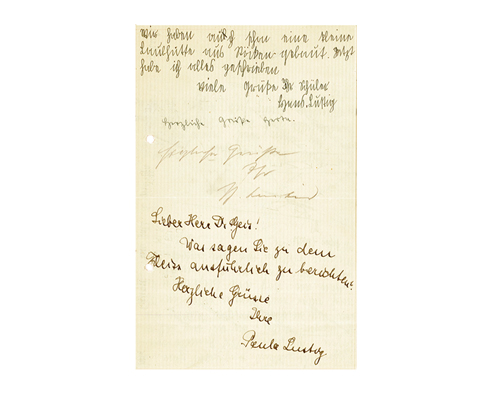 Wir haben auch schon eine kleine
Laubhütte aus Stöcken gebaut. Jetzt
habe ich alles geschrieben
viele Grüße Ihr Schüler
Hans Lustig
Herzliche Grüße
Herzliche Grüsse
Ihr
Lieber Herr Dr Geis!
Was sagen Sie zu dem
Fleiss ausführlich zu berichten?
Herzliche Grüsse
Ihre
Paula Lustig